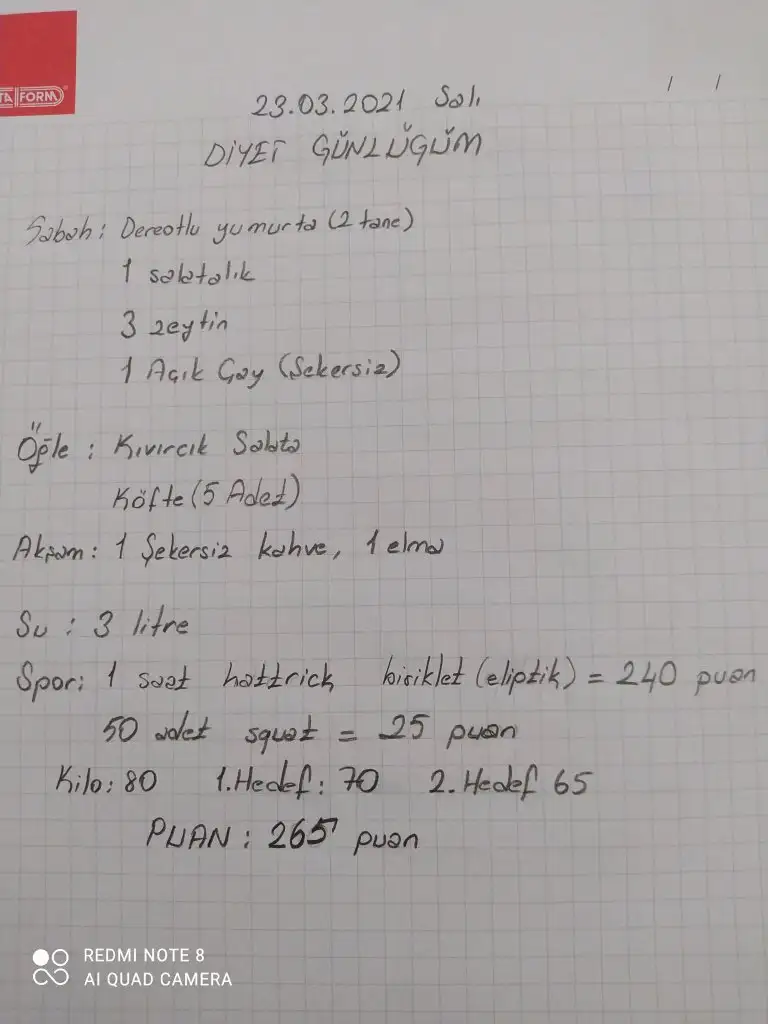 TA FORM
/ /
23.03.2021 Salı
DİYET GÜNLÜĞÜM
Sabah: Dereotlu yumurta (2 tane)
1 salatalık
3 zeytin
1 Açık Çay (Şekersiz)
Öğle : Kıvırcık Salata
Köfte (5 Adet)
Akşam: 1 Şekersiz kahve, 1 elma
Su : 3 litre
Spor: 1 saat hattrick bisiklet (eliptik) = 240 puan
50 adet squat = 25 puan
Kilo: 80 1.Hedef: 70 2. Hedef 65
PUAN : 265 puan
REDMI NOTE 8
AI QUAD CAMERA